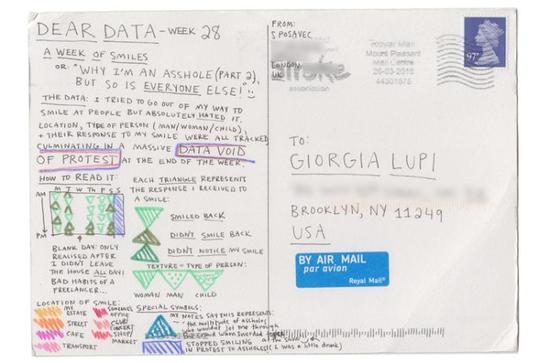 DEAR DATA - WEEK 28
A WEEK OF SMILES
OR: "WHY I'M AN ASSHOLE (PART 2),
BUT SO IS EVERYONE ELSE!"
THE DATA: I TRIED TO GO OUT OF MY WAY TO
SMILE AT PEOPLE BUT ABSOLUTELY HATED IT.
LOCATION, TYPE OF PERSON (MAN/WOMAN/CHILD),
+ THEIR RESPONSE TO MY SMILE WERE ALL TRACKED,
CULMINATING IN A MASSIVE DATA VOID
OF PROTEST AT THE END OF THE WEEK.
HOW TO READ IT:
M T W Th F S S
AM
PM
BLANK DAY: ONLY
REALISED AFTER
I DIDN'T LEAVE
THE HOUSE ALL DAY!
BAD HABITS OF A
FREELANCER...
EACH TRIANGLE REPRESENTS
THE RESPONSE I RECEIVED TO
A SMILE:
SMILED BACK
DIDN'T SMILE BACK
DIDN'T NOTICE MY SMILE
TEXTURE = TYPE OF PERSON:
WOMAN MAN CHILD
LOCATION OF SMILE:
MY ESTATE
STREET
CAFE
TRANSPORT
OFFICE
SHOP
MARKET
SPECIAL SYMBOLS:
MY NOTES SAY THIS REPRESENTS:
the multitude of assholes
who wouldn't let me through
STOPPED SMILING
IN PROTEST TO ASSHOLES (I was a little drunk)
FROM:
S POSAVEC
LONDON
UK
association
Royal Mail
Mount Pleasant
Mail Centre
44301975
97
TO:
GIORGIA LUPI
BROOKLYN, NY 11249
USA
BY AIR MAIL
par avion
Royal Mail